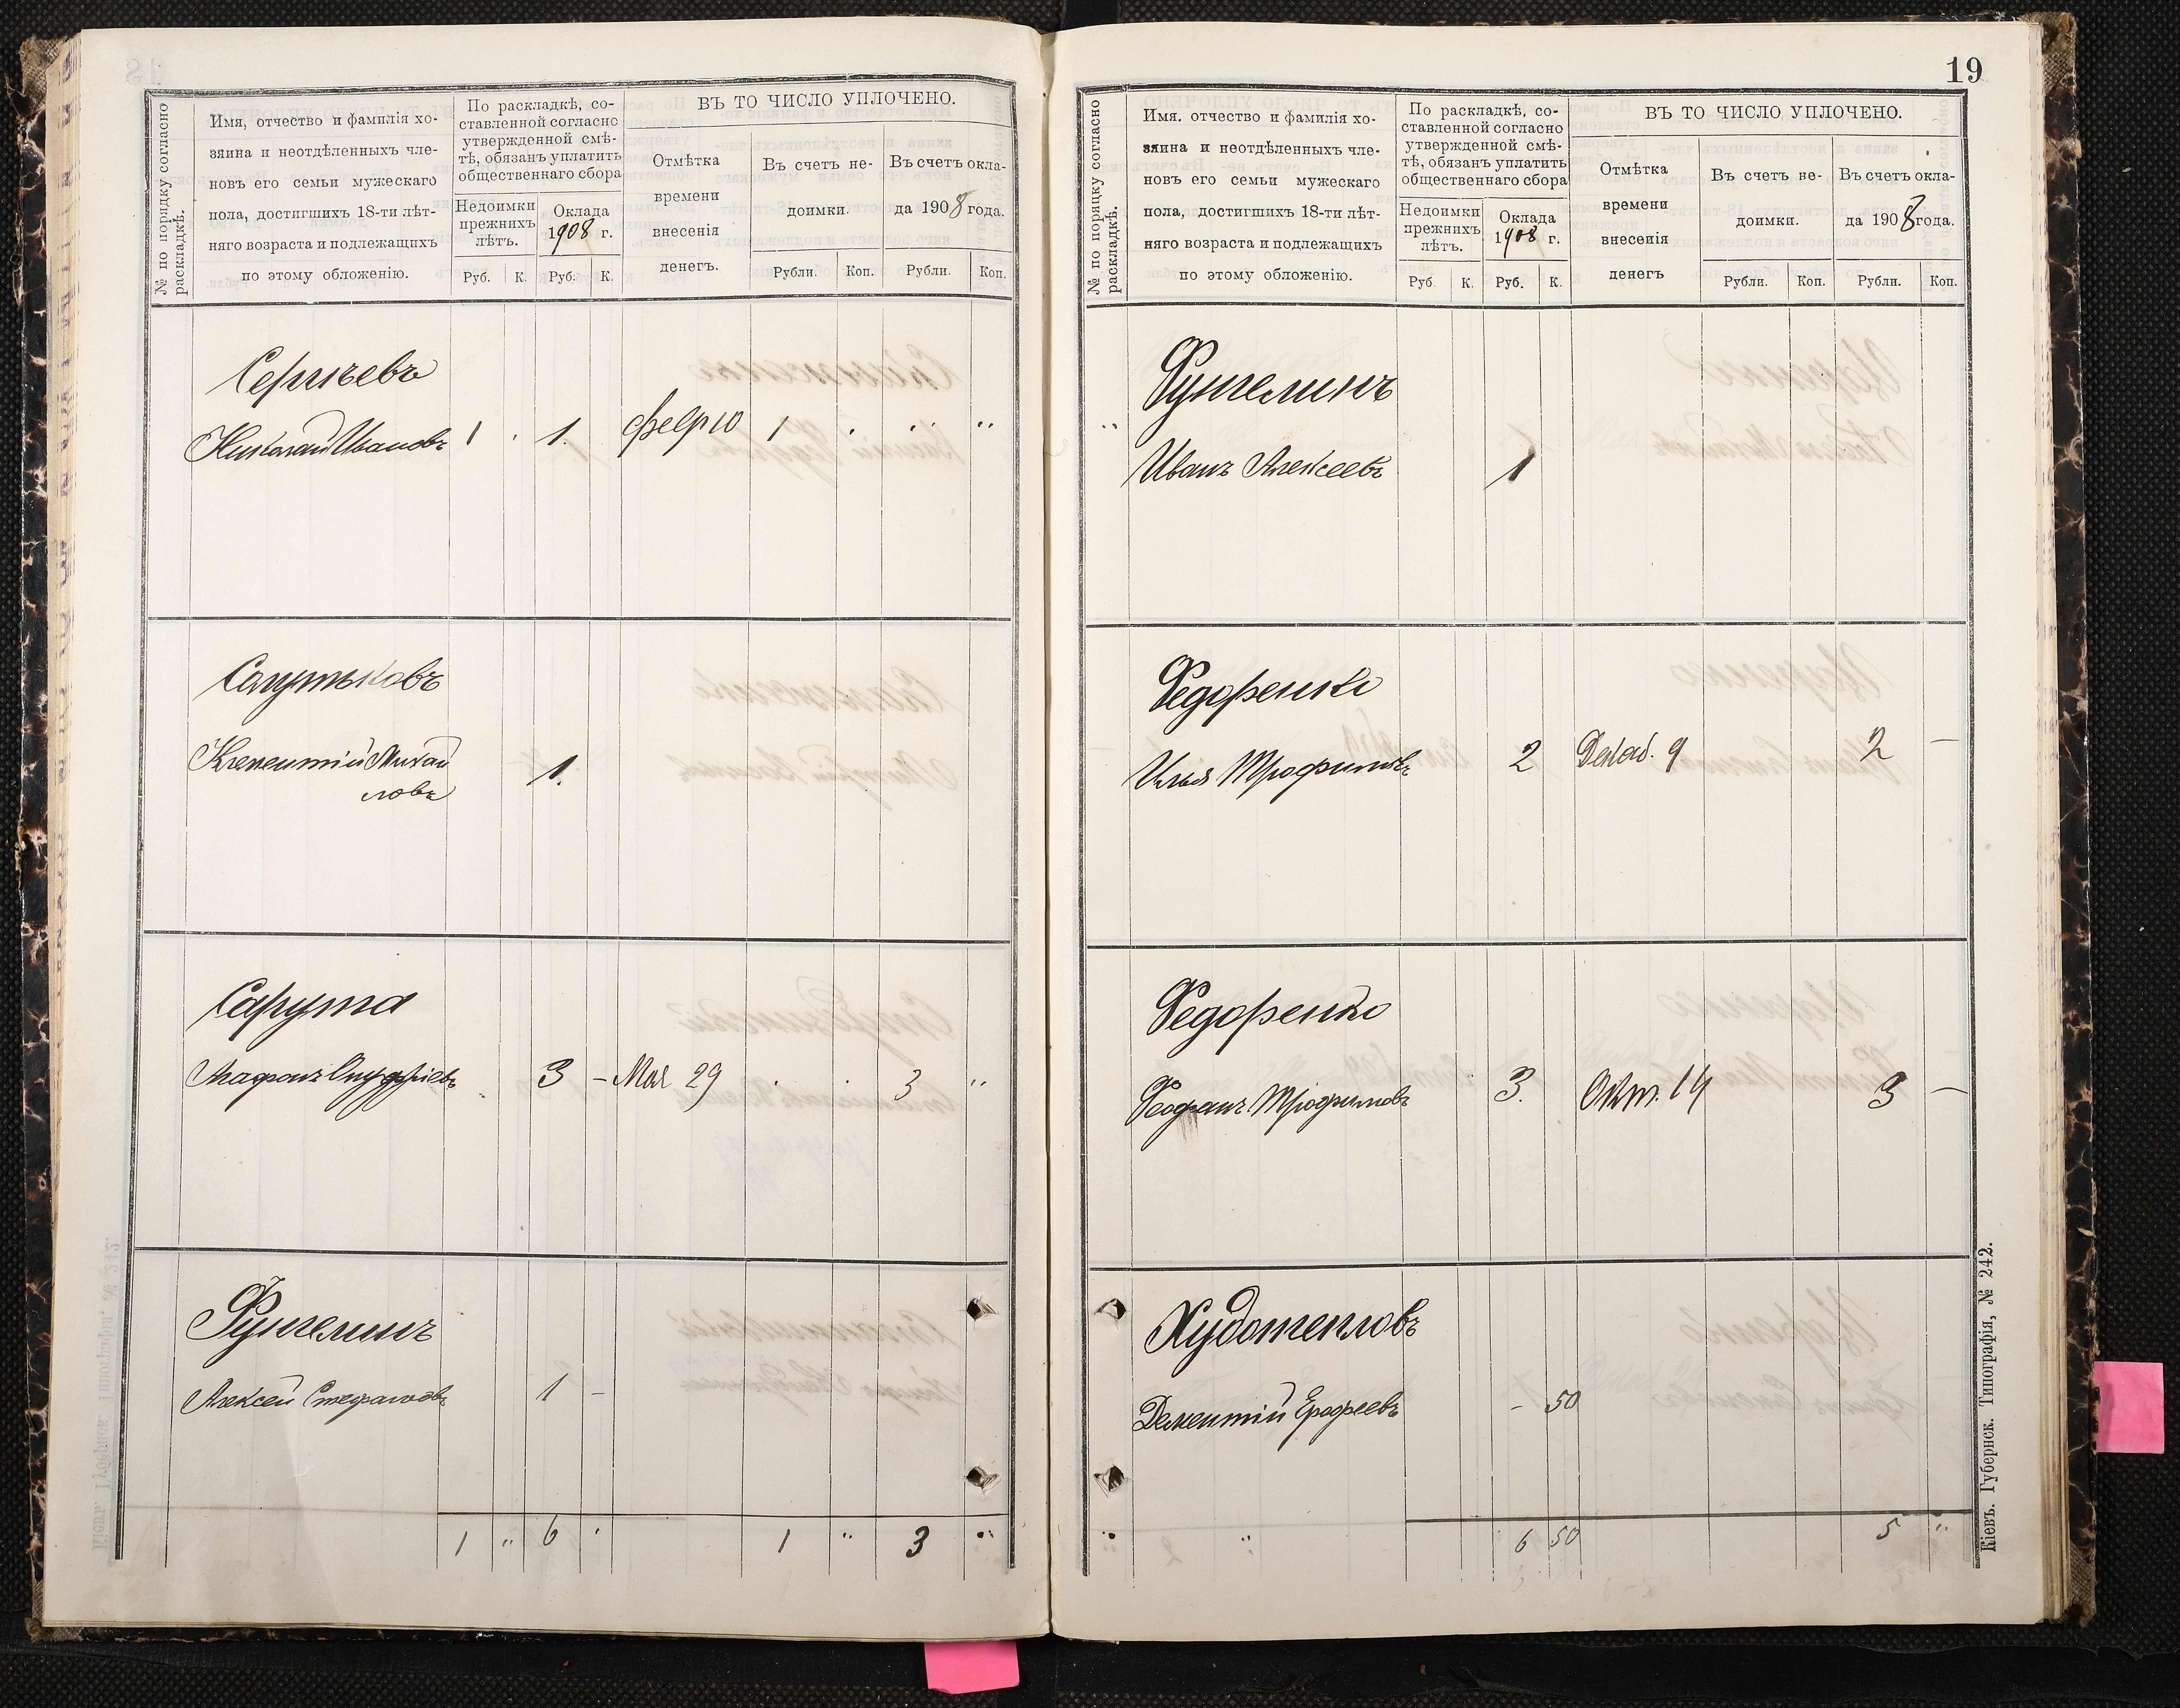 № по порядку согласно
раскладкѣ.
Имя, отчество и фамилія хо-
зяина и неотдѣленныхъ чле-
новъ его семьи мужескаго
пола, достигшихъ 18-ти лѣт-
няго возраста и подлежащихъ
по этому обложенію.
По раскладкѣ, со-
ставленной согласно
утвержденной смѣ-
тѣ, обязанъ уплатить
общественнаго сбора
Недоимки
прежнихъ
лѣтъ.
Оклада
1908 г.
Руб. К. Руб. К.
ВЪ ТО ЧИСЛО УПЛОЧЕНО.
Отмѣтка
времени
внесенія
денегъ.
Въ счетъ не-
доимки.
Въ счетъ окла-
да 1908 года.
Рубли. Коп. Рубли. Коп.
Сергѣевъ
Николай Ивановъ 1 . 1. февр 10 1 . . . "
Климентій Михай
ловъ 1.
Сарута
Агафонъ Онуфріевъ . 3 – Мая 29 . . 3 "
Алексей Стефановъ 1 –
1 " 6 . 1 " 3 "
19
№ по порядку согласно
раскладкѣ.
Имя. отчество и фамилія хо-
зяина и неотдѣленныхъ чле-
новъ его семьи мужескаго
пола, достигшихъ 18-ти лѣт-
няго возраста и подлежащихъ
по этому обложенію.
По раскладкѣ, со-
ставленной согласно
утвержденной смѣ-
тѣ, обязанъ уплатить
общественнаго сбора
Недоимки
прежнихъ
лѣтъ.
Оклада
1908 г.
Руб К. Руб. К.
ВЪ ТО ЧИСЛО УПЛОЧЕНО.
Отмѣтка
времени
внесенія
денегъ
Въ счетъ не-
доимки.
Въ счетъ окла-
да 1908 года.
Рубли. Коп. Рубли. Коп.
Иванъ Алексеевъ 1
Федоренко
Илья Трофимовъ 2 Декаб. 9 2 –
Федоренко
Феофанъ Трофимовъ 3. Окт. 14 3 –
Худотепловъ
Дементій Ерофеевъ – 50
6 50 5 "
Кіевъ. Губернск. Типографія, № 242.